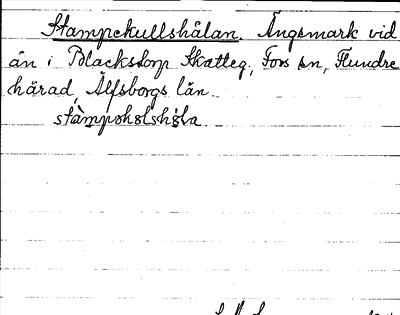 Stampekullshålan. Ängsmark vid
ån i Blackstorp Skatteg., Fors sn, Flundre
härad, Älfsborgs län.